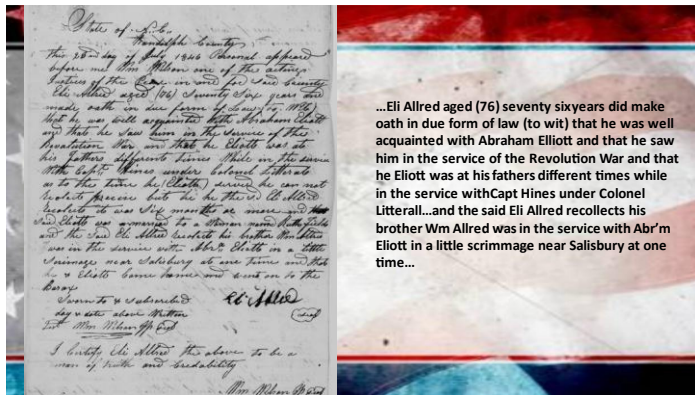 State of N.C.
Randolph County
this 28th day of July 1846 Personal appeared
before me Wm Wilson one of the acting
Justices of the Peace in and for said County
Eli Allred aged (76) Seventy Six years and
made oath in due form of Law (to Wit)
that he was well acquainted with Abraham Eliott
and that he Saw him in the Service of the
Revolution War and that he Eliott was at
his fathers differents times While in the service
With Capt Hines under Colonel Litterale
as to the time he (Eliott) served he can not
recolect precise but he the sd Eli Allred
recolects it was Six months or more and
Said Eliott was married to a Woman named
and the Said Eli Allred recolects his brother Wm Allred
was in the service with Abrm Eliott in a little
Scrimage near Salisbury at one time and that
he & Eliott Came home and went on to the
Sworn to & Subscribed
day & date above Written
Eli Allred
Wm Wilson JP
I Certify Eli Allred the above to be a
man of truth and Credability
Wm Wilson JP
…Eli Allred aged (76) seventy sixyears did make
oath in due form of law (to wit) that he was well
acquainted with Abraham Elliott and that he saw
him in the service of the Revolution War and that
he Eliott was at his fathers different times while
in the service withCapt Hines under Colonel
Litterall…and the said Eli Allred recollects his
brother Wm Allred was in the service with Abr’m
Eliott in a little scrimmage near Salisbury at one
time…